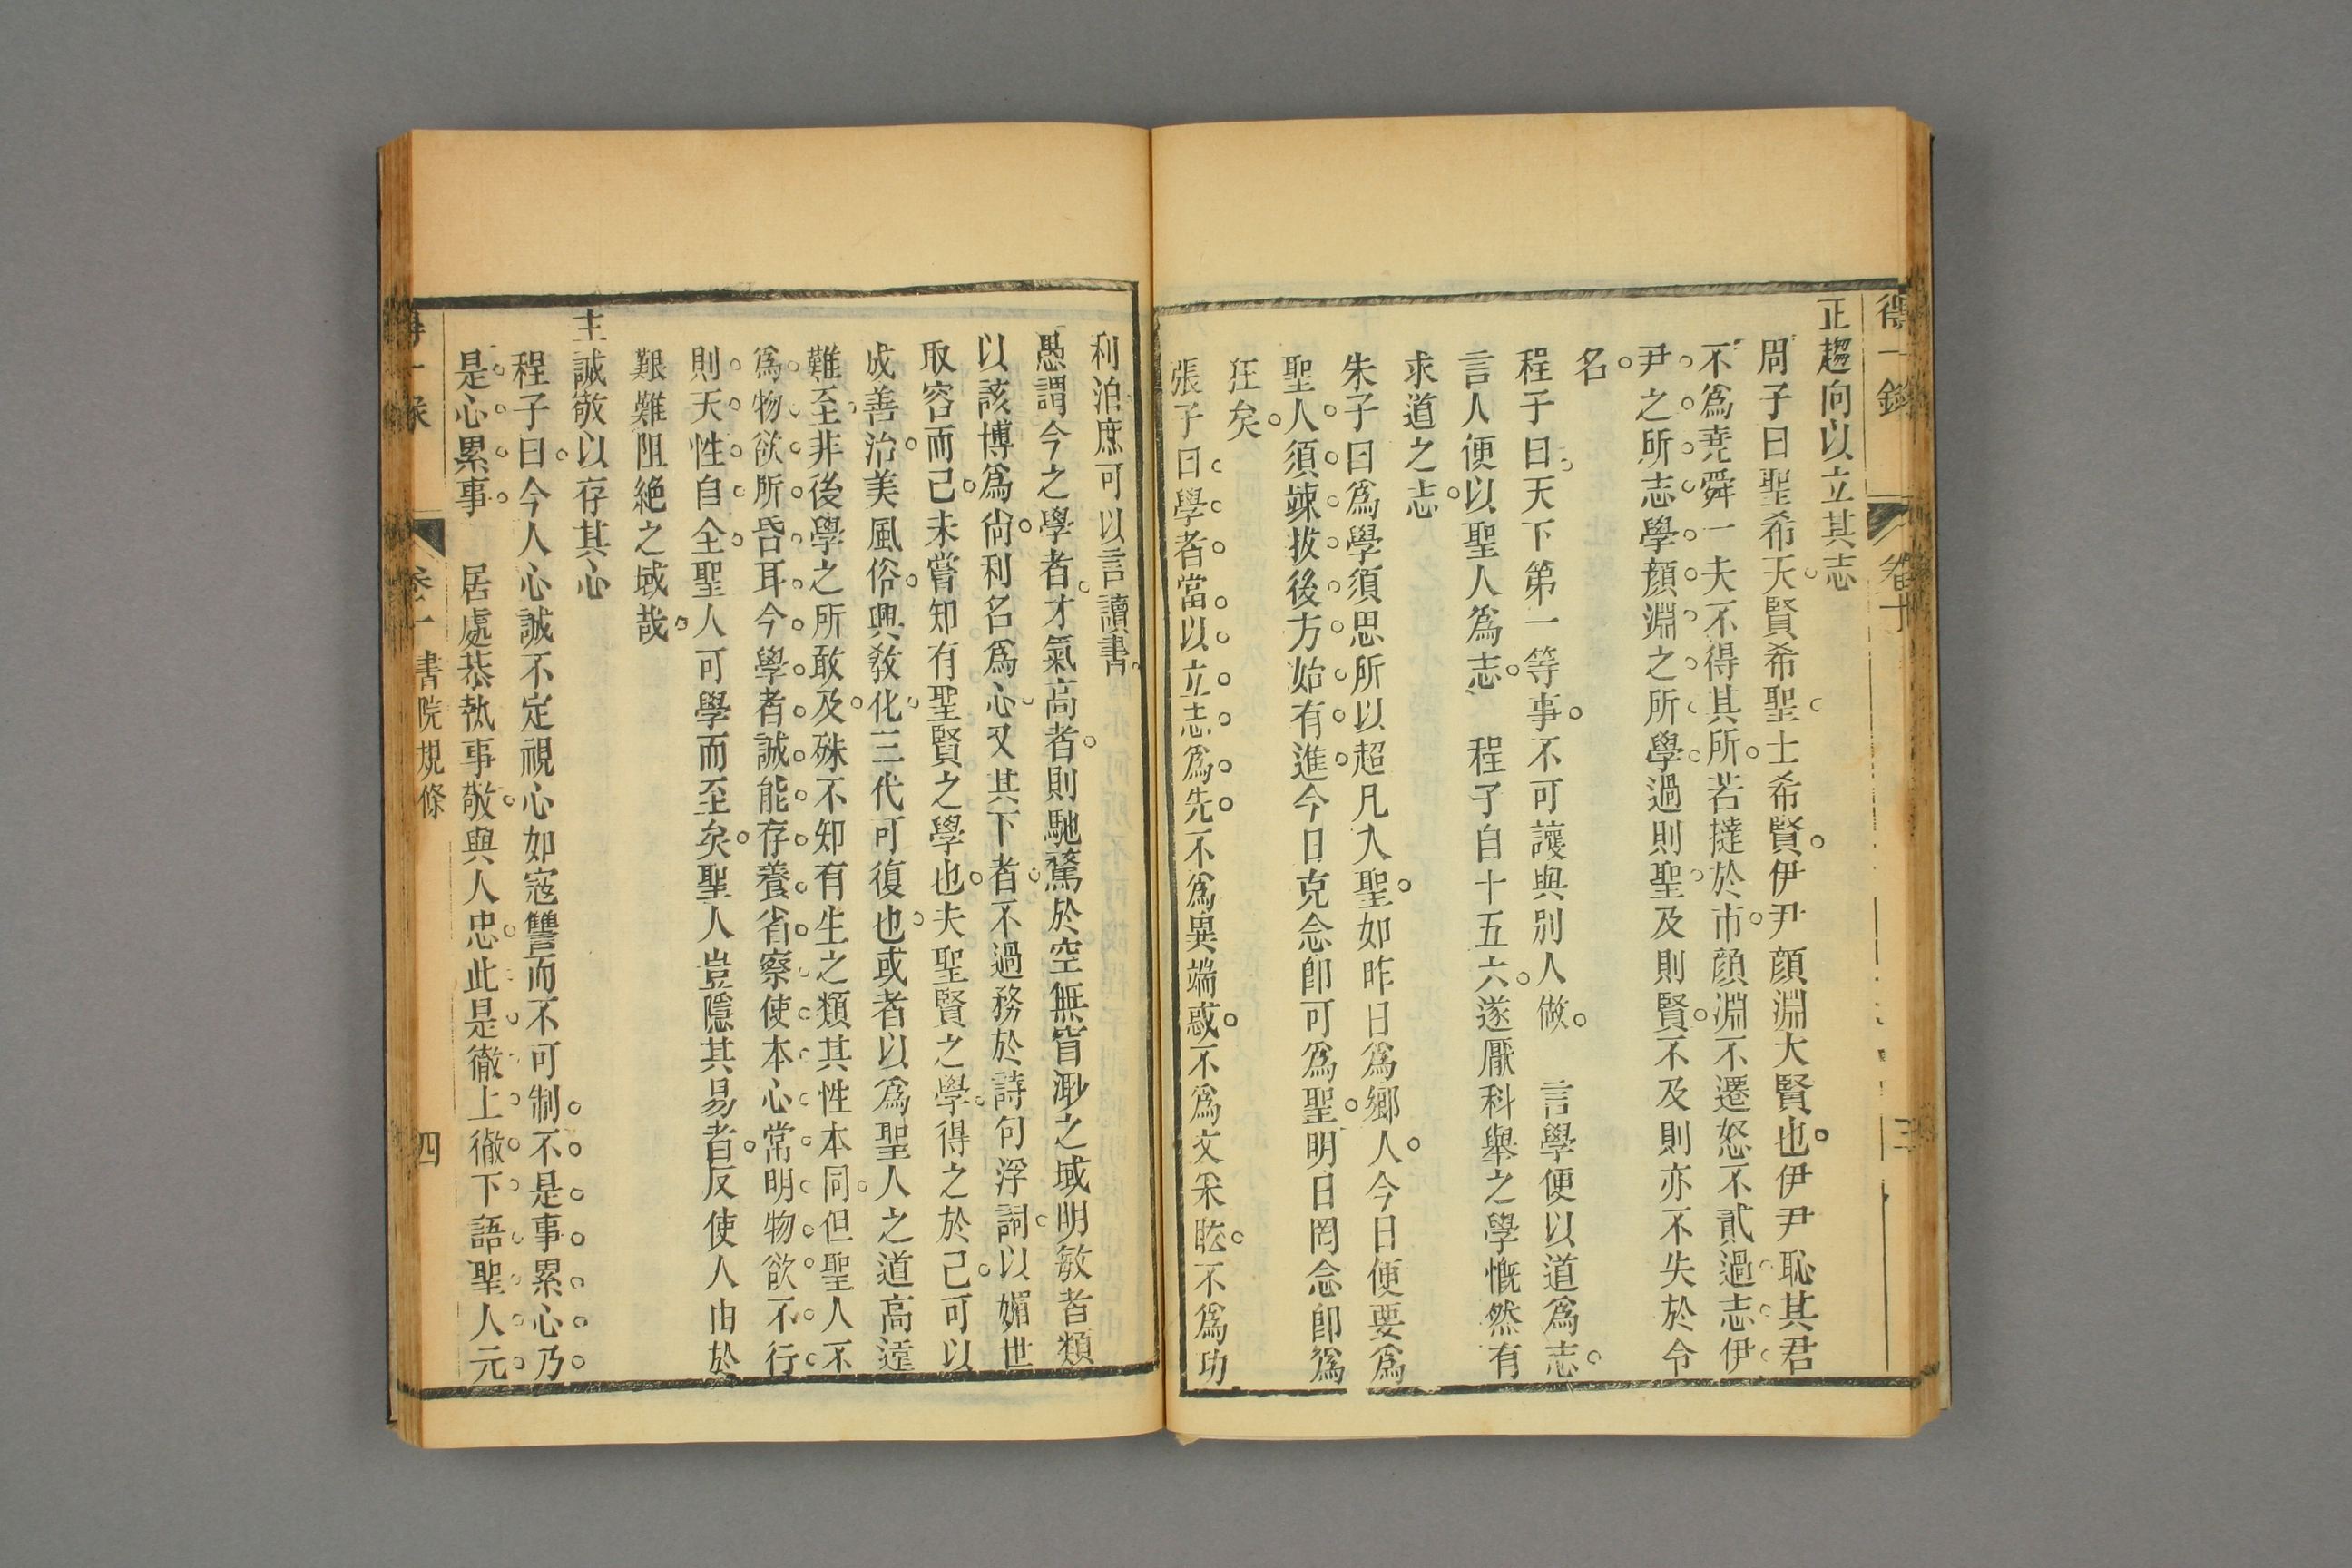 得一錄
三
正趨向以立其志
周子曰聖希天賢希聖士希賢伊尹顏淵大賢也伊尹恥其君
不爲堯舜一夫不得其所若撻於市顏淵不遷怒不貳過志伊
尹之所志學顏淵之所學過則聖及則賢不及則亦不失於令
名
程子曰天下第一等事不可讓與別人做　言學便以道爲志
言人便以聖人爲志　程子自十五六遂厭科舉之學慨然有
求道之志
朱子曰爲學須思所以超凡入聖如昨日爲鄉人今日便要爲
聖人須竦拔後方始有進今日克念卽可爲聖明日罔念卽爲
狂矣
張子曰學者當以立志爲先不爲異端惑不爲文采眩不爲功
利泊庶可以言讀書
愚謂今之學者才氣高者則馳騖於空無窅渺之域明敏者類
以該博爲尙利名爲心又其下者不過務於詩句浮詞以媚世
取容而已未嘗知有聖賢之學也夫聖賢之學得之於己可以
成善治美風俗興敎化三代可復也或者以爲聖人之道高遠
難至非後學之所敢及殊不知有生之類其性本同但聖人不
爲物欲所昏耳今學者誠能存養省察使本心常明物欲不行
則天性自全聖人可學而至矣聖人豈隱其易者反使人由於
艱難阻絕之域哉
主誠敬以存其心
程子曰今人心誠不定視心如寇讐而不可制不是事累心乃
是心累事　居處恭執事敬與人忠此是徹上徹下語聖人元
書院規條
四